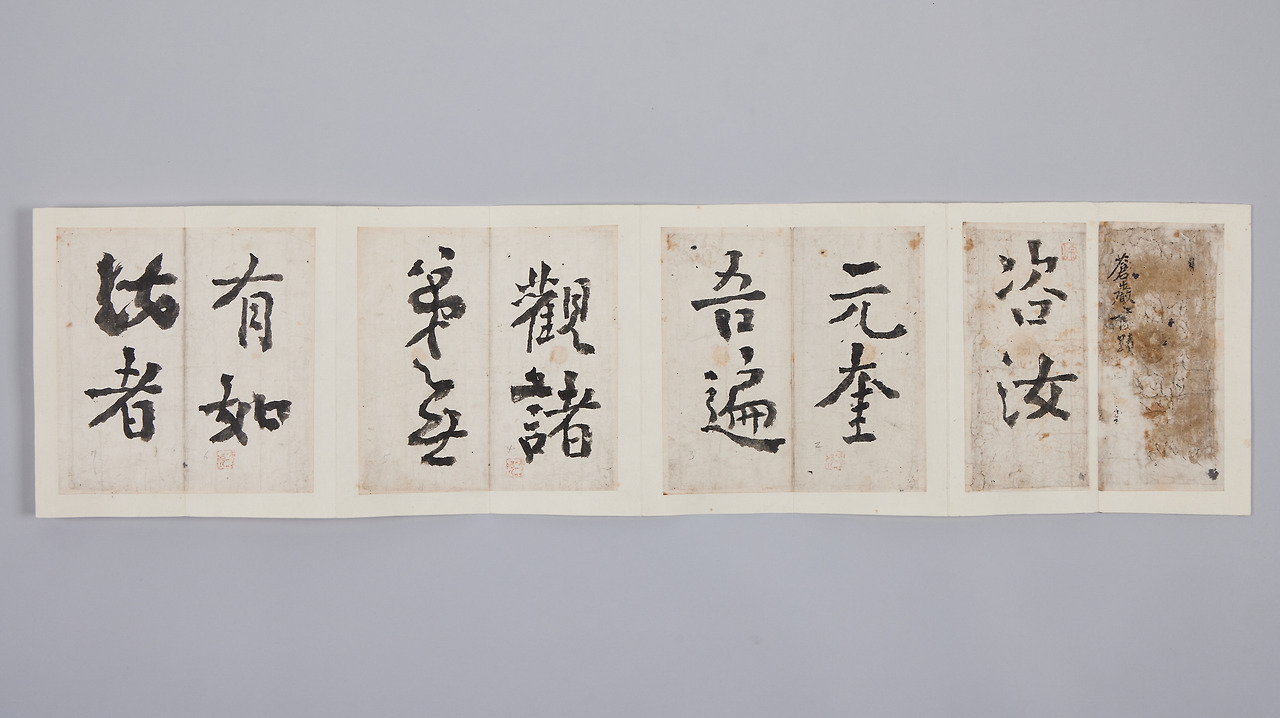 蒼巖
咨汝
元奎
吾遍
觀諸
弟無
有如
汝者